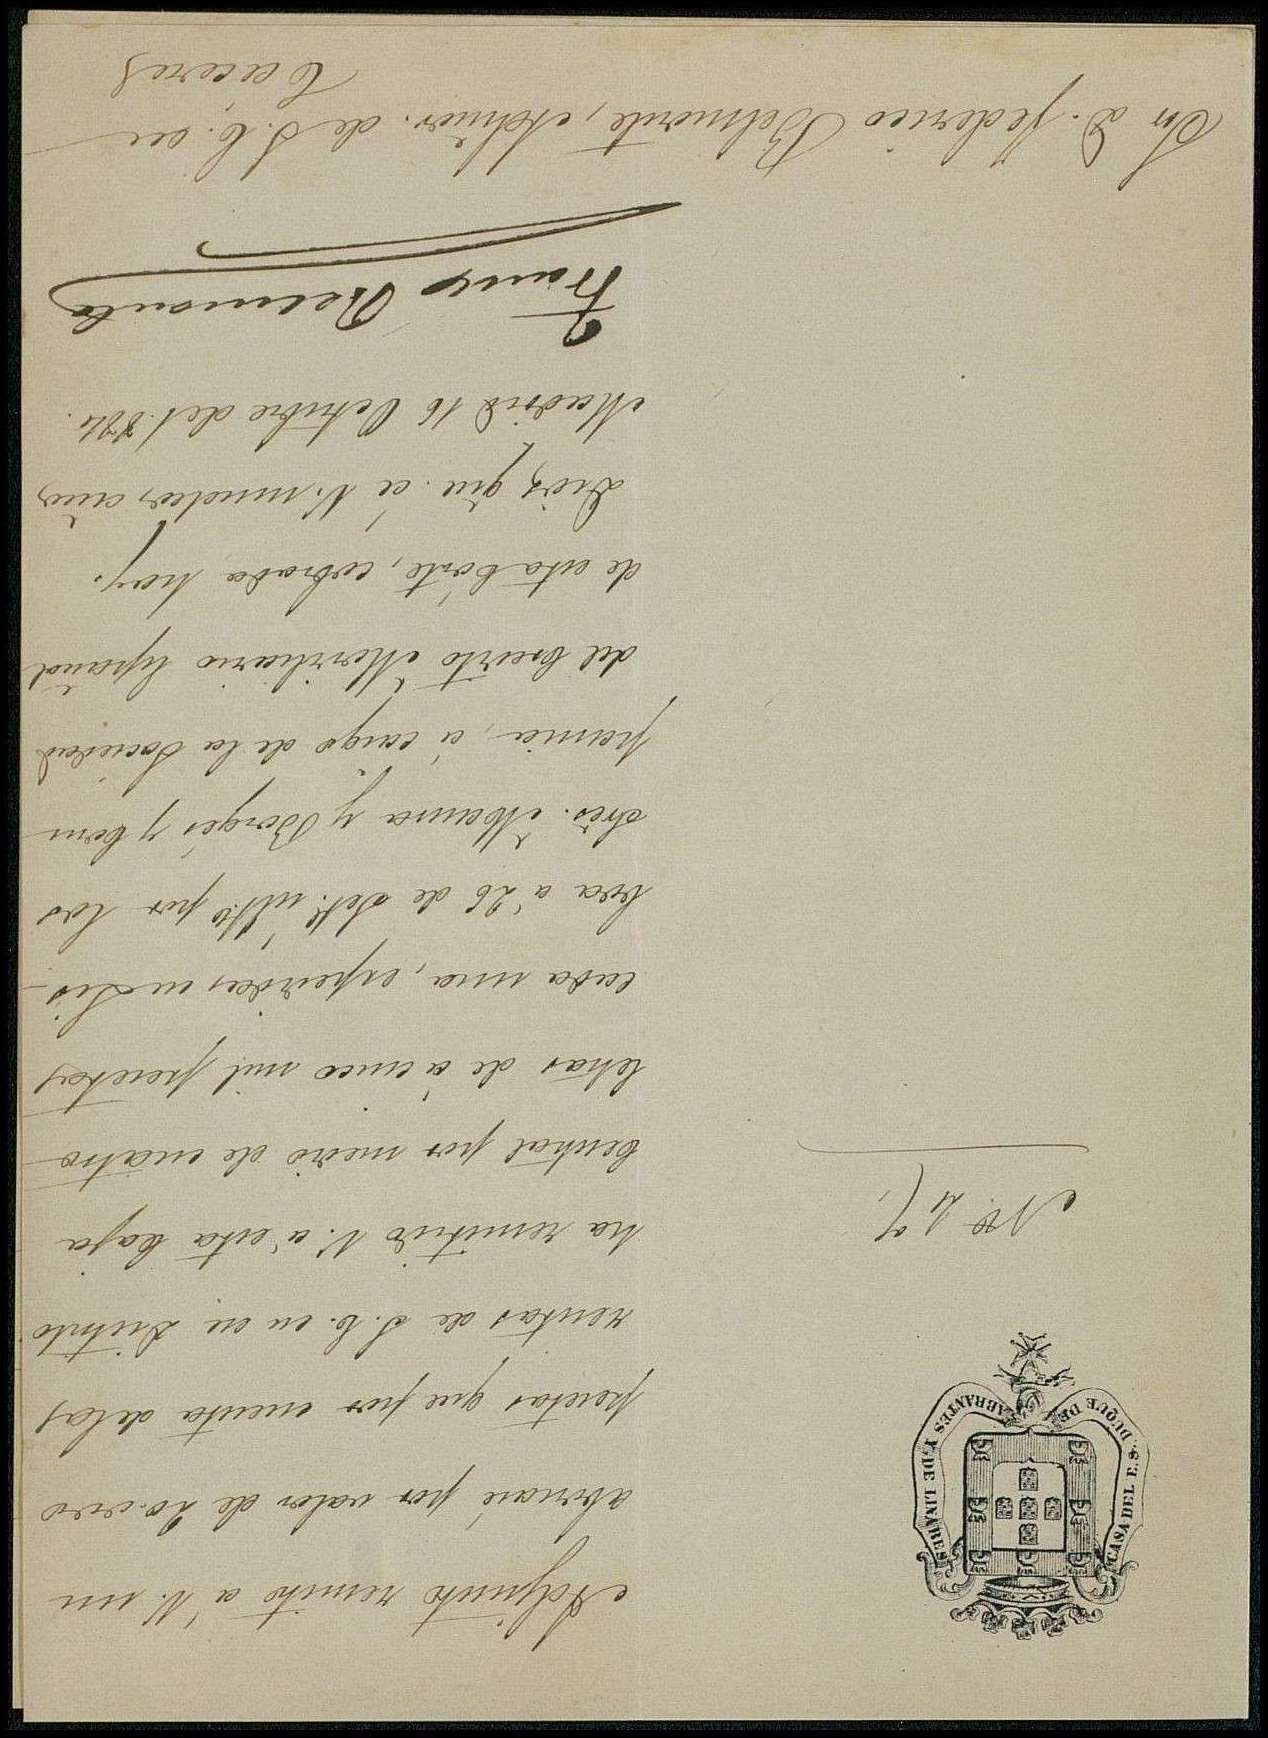 CASA DEL E. S. DUQUE DE ABRANTES Y DE LINARES
Nº 47,
Adjunto remito á V. un
abonaré por valor de 20.000
pesetas que por cuenta de las
rentas de S. E. en ese Distrito
ha remitido V. á esta Caja
Central por medio de cuatro
letras de á cinco mil pesetas
cada una, expedidas en Lis-
boa á 26 de Set.e últ.o por los
Sres. Moura y Borges y Com
pania, á cargo de la Sociedad
del Credito Moviliario Español
de esta Corte, cobrada hoy.
Dios gue. á V. muchos años
Madrid 16 Octubre de 1.
Franco
Sr. D. Federico Belmonte, Admor. de S. E. en
Caceres